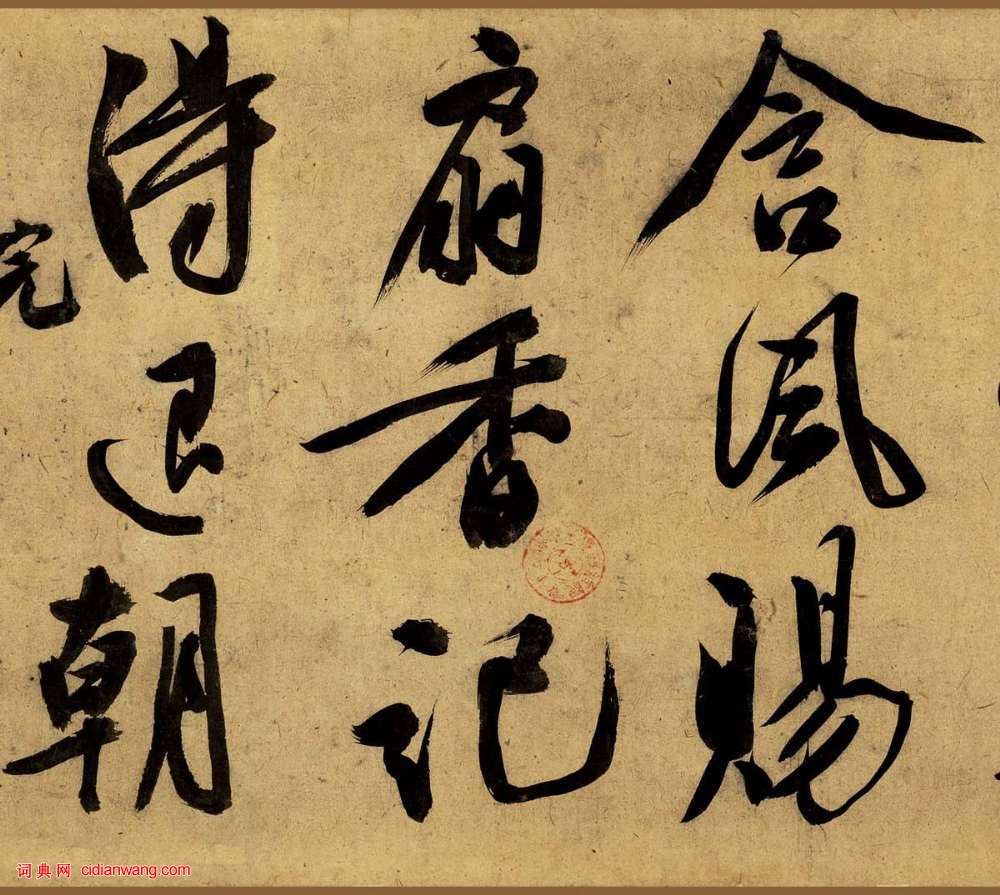 含风赐
扇香记
得退朝
完
词典网 cidianwang.com